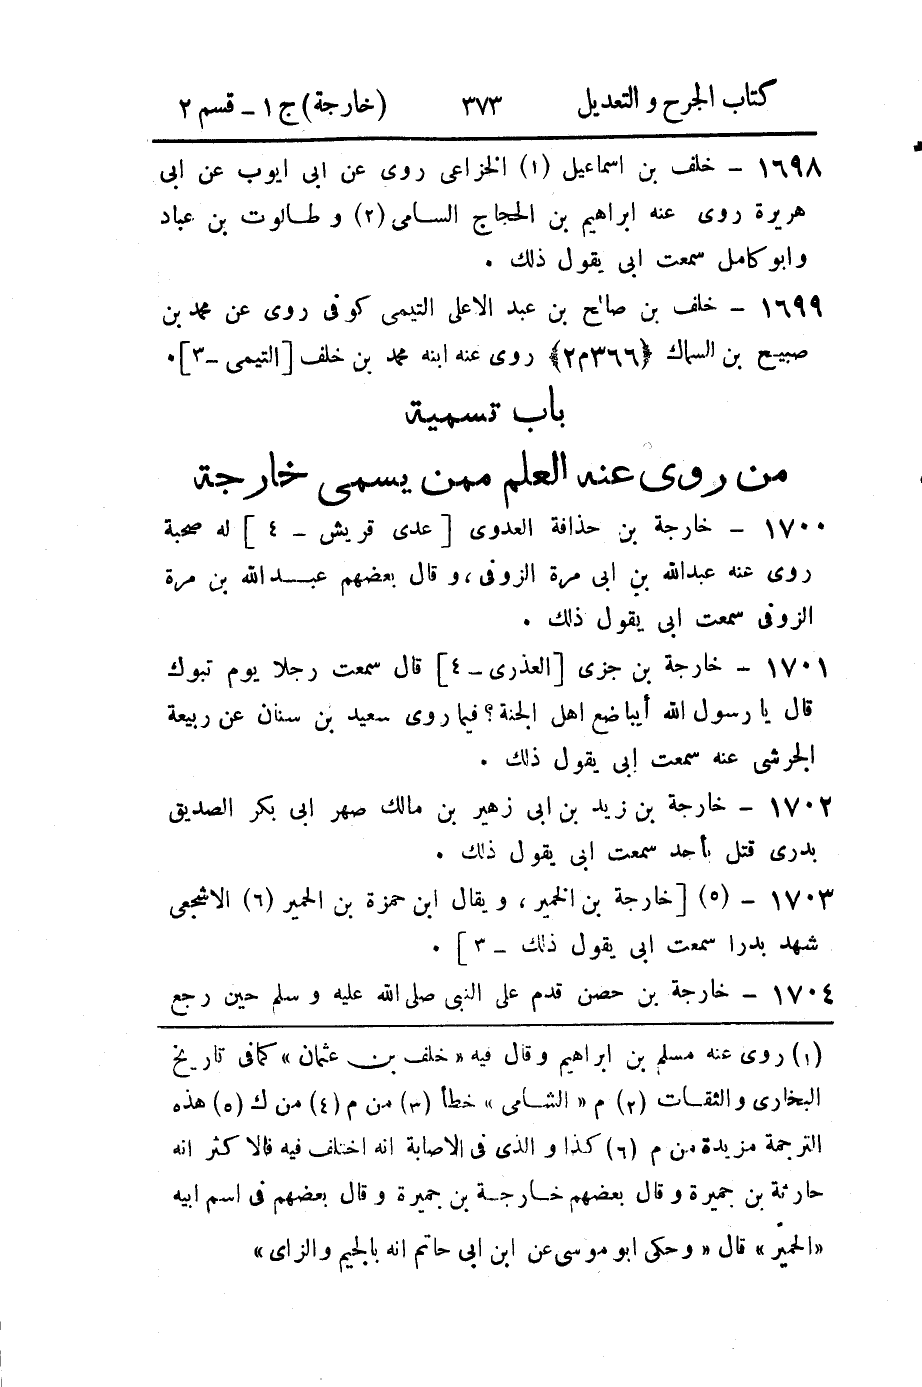 كتاب الجرح و التعديل ٣٧٣ (خارجة) ج ١ ـ قسم ٢
١٦٩٨ ـ خلف بن اسماعيل (١) الخزاعى روى عن ابى ايوب عن ابى
هريرة روى عنه ابراهيم بن الحجاج السامى (٢) و طالوت بن عباد
و ابو كامل سمعت ابى يقول ذلك .
١٦٩٩ ـ خلف بن صالح بن عبد الاعلى التيمى كوفى روى عن محمد بن
صبيح بن السماك ﴿٣٦٦م٢﴾ روى عنه ابنه محمد بن خلف [التيمى ـ ٣] .
باب تسمية
من روى عنه العلم ممن يسمى خارجة
١٧٠٠ ـ خارجة بن حذافة العدوى [ عدى قريش ـ ٤ ] له صحبة
روى عنه عبدالله بن ابى مرة الزوفى ، و قال بعضهم عبدالله بن مرة
الزوفى سمعت ابى يقول ذلك .
١٧٠١ ـ خارجة بن جزى [العذرى ـ ٤] قال سمعت رجلا يوم تبوك
قال يا رسول الله أيباضع اهل الجنة؟ فيما روى سعيد بن سنان عن ربيعة
الجرشى عنه سمعت ابى يقول ذلك .
١٧٠٢ ـ خارجة بن زيد بن ابى زهير بن مالك صهر ابى بكر الصديق
بدرى قتل بأحد سمعت ابى يقول ذلك .
١٧٠٣ ـ (٥) [خارجة بن الخمير ، و يقال ابن حمزة بن الحمير (٦) الاشجعى
شهد بدرا سمعت ابى يقول ذلك ـ ٣] .
١٧٠٤ ـ خارجة بن حصن قدم على النبى صلى الله عليه و سلم حين رجع
(١) روى عنه مسلم بن ابراهيم و قال فيه « خلف بن عثمان » كما فى تاريخ
البخارى و الثقات (٢) م « الشامى » خطأ (٣) من م (٤) من ك (٥) هذه
الترجمة مزيدة من م (٦) كذا و الذى فى الاصابة انه اختلف فيه فالاكثر انه
حارثة بن حميرة و قال بعضهم خارجة بن حميرة و قال بعضهم فى اسم ابيه
«الحميّر » قال « و حكى ابو موسى عن ابن ابى حاتم انه بالجيم و الزاى»